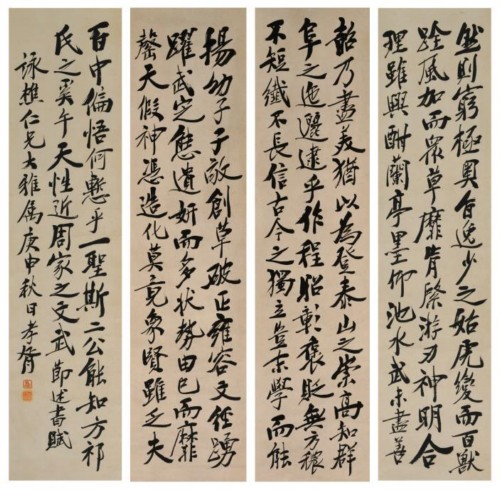 然則窮極奧旨逸少之始虎變而百獸
跧風加而眾草靡肯綮游刃神明合
理雖興酣蘭亭墨仰池水武未盡善
韶乃盡美猶以為登泰山之崇高知群
阜之迤邐逮乎作程昭彰褒貶無方穠
不短纖不長信古今之獨立豈末學而能
揚幼子子敬創草破正雍容文經踴
躍武定態遺妍而多狀勢由己而靡
罄天假神憑造化莫竟象賢雖乏夫
百中偏悟何慙乎一聖斯二公能知方祁
氏之奚午天性近周家之文武節述書賦
詠樵仁兄大雅屬庚申秋日孝胥